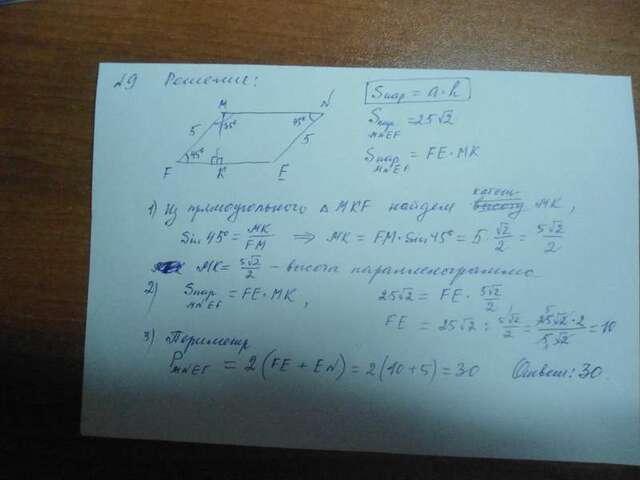 №9 Решение:
M N
5 35° 45° 5
F 45° K E
Sпар = a·h
Sпар MNEF = 25√2
Sпар MNEF = FE·MK
1) Из прямоугольного △ MKF найдем катет MK,
Sin 45° = MK/FM ⇒ MK = FM·Sin 45° = 5·√2/2 = 5√2/2
MK = 5√2/2 – высота параллелограмма
2) Sпар MNEF = FE·MK, 25√2 = FE·5√2/2
FE = 25√2 : 5√2/2 = 25√2·2/5√2 = 10
3) Периметр
P MNEF = 2(FE + EN) = 2(10+5) = 30 Ответ: 30.